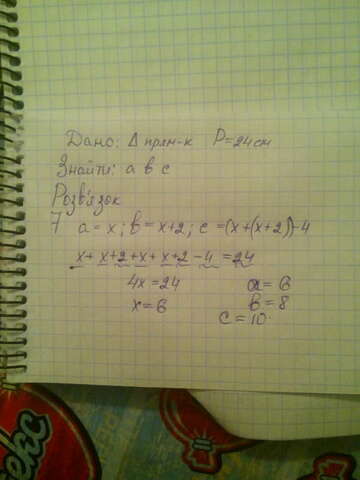 Дано: Δ прям-к P=24см
Знайти: а в с
Розв'язок
7 a = x; в = x+2; c = (x+(x+2))-4
x+x+2+x+x+2-4=24
4x=24
x=6
a=6
в=8
c=10
екс